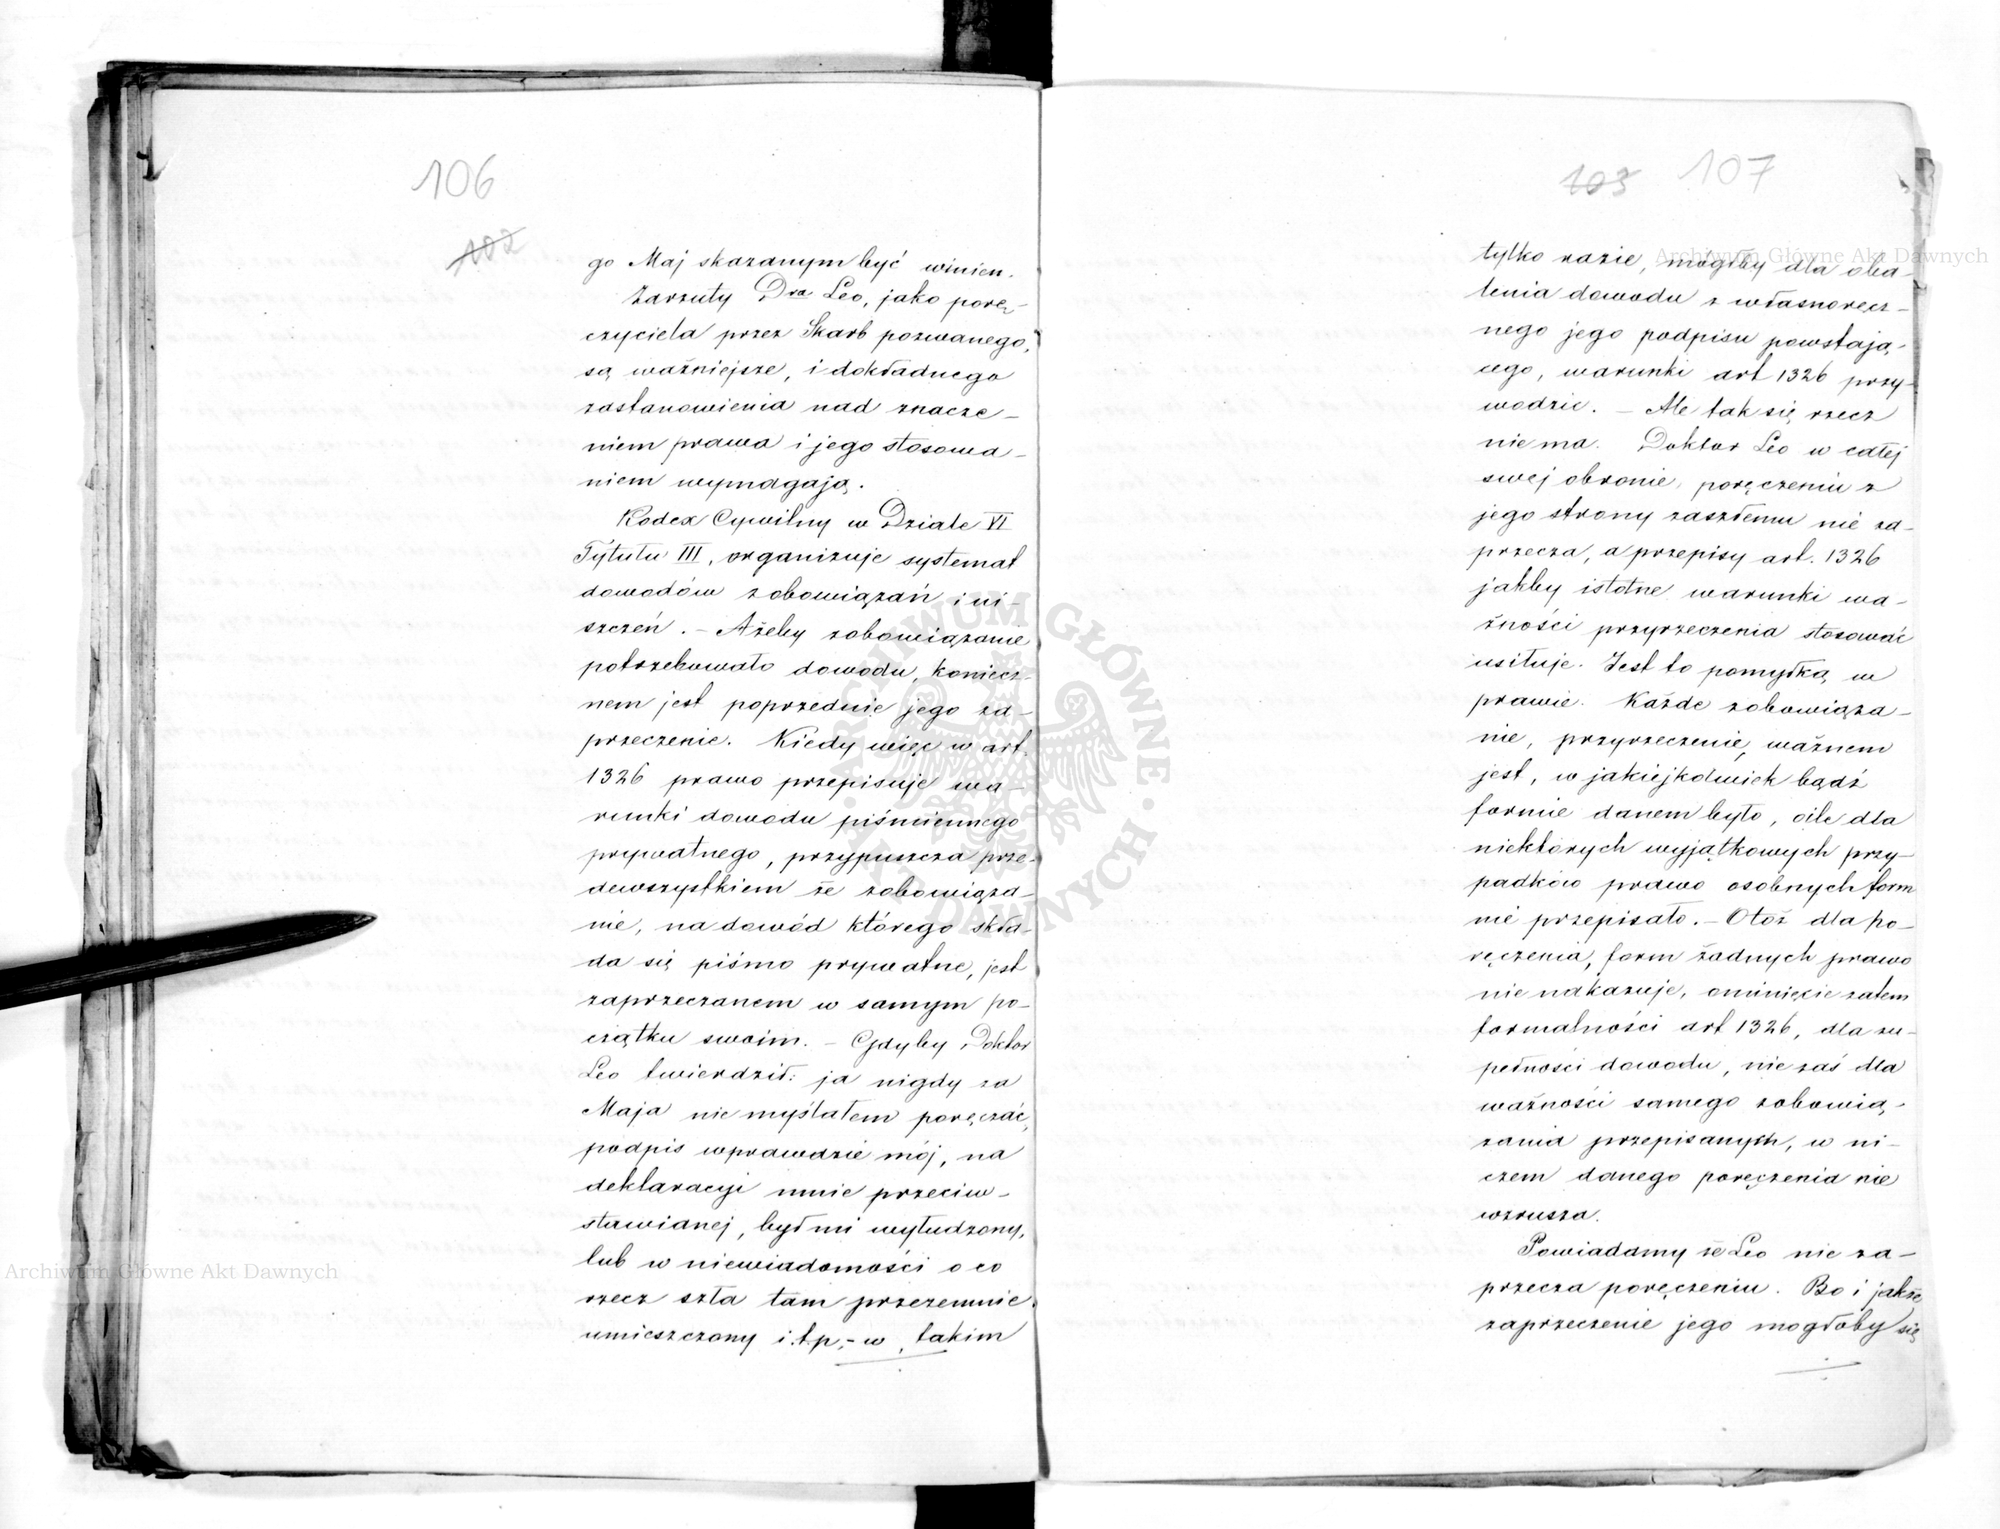 106
102
go Maj skazanym być winien.
Zarzuty Dra Leo, jako porę-
czyciela przez Skarb pozwanego,
są ważniejsze, i dokładnego
zastanowienia nad znacze-
niem prawa i jego stosowa-
niem wymagają.
Kodex Cywilny w Dziale VI
Tytułu III, organizuje systemat
dowodów zobowiązań i ui-
szczeń. - Ażeby zobowiązanie
potrzebowało dowodu, koniecz-
nem jest poprzednie jego za-
przeczenie. Kiedy więc w art.
1326 prawo przepisuje wa-
runki dowodu piśmiennego
prywatnego, przypuszcza prze-
dewszystkiem że zobowiąza-
nie, na dowód którego skła-
da się pismo prywatne, jest
zaprzeczanem w samym po-
czątku swoim. - Gdyby Doktor
Leo twierdził: ja nigdy za
Maja nie myślałem poręczać,
podpis wprawdzie mój, na
deklaracyi mnie przeciw-
stawianej, był mi wyłudzony,
lub w niewiadomości o co
rzecz szła tam przezemnie
umieszczony i.t.p. - w takim
103 107
tylko razie, mógłby dla oba-
lenia dowodu z własnoręcz-
nego jego podpisu powstają-
cego, warunki art 1326 przy-
wodzić. - Ale tak się rzecz
nie ma. Doktor Leo w całej
swej obronie, poręczeniu z
jego strony zaszłemu nie za-
przecza, a przepisy art. 1326
jakby istotne warunki wa-
żności przyrzeczenia stosować
usiłuje. Jest to pomyłką w
prawie. Każde zobowiąza-
nie, przyrzeczenie, ważnem
jest, w jakiejkolwiek bądź
formie danem było, o ile dla
niektórych wyjątkowych przy-
padków prawo osobnych form
nie przepisało. - Otóż dla po-
ręczenia, form żadnych prawo
nie nakazuje, ominięcie zatem
formalności art 1326, dla zu-
pełności dowodu, nie zaś dla
ważności samego zobowią-
zania przepisanych, w ni-
czem danego poręczenia nie
wzrusza.
Powiadamy że Leo nie za-
przecza poręczeniu. Bo i jakże
zaprzeczenie jego mogłoby się
Archiwum Główne Akt Dawnych
Archiwum Główne Akt Dawnych
ARCHIWUM GŁÓWNE AKT DAWNYCH